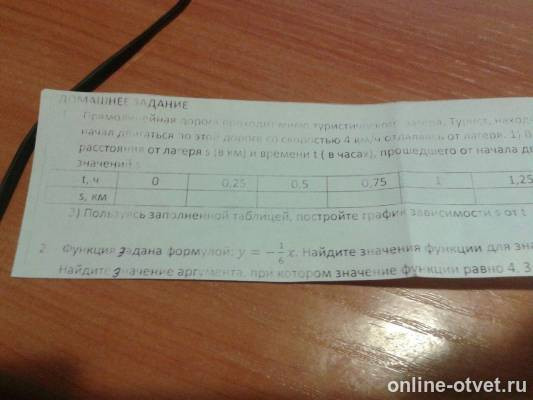 ДОМАШНЕЕ ЗАДАНИЕ
Прямолинейная дорога проходит мимо туристического лагеря. Турист, наход
начал двигаться по этой дороге со скоростью 4 км/ч отдаляясь от лагеря. 1) В
расстояния от лагеря s (в км) и времени t ( в часах), прошедшего от начала д
значений s
t, ч 0 0,25 0,5 0,75 1 1,25
s, км
3) Пользуясь заполненной таблицей, постройте график зависимости s от t
2. Функция задана формулой: y = −1/6 x. Найдите значения функции для зна
Найдите значение аргумента, при котором значение функции равно 4. 3
online-otvet.ru